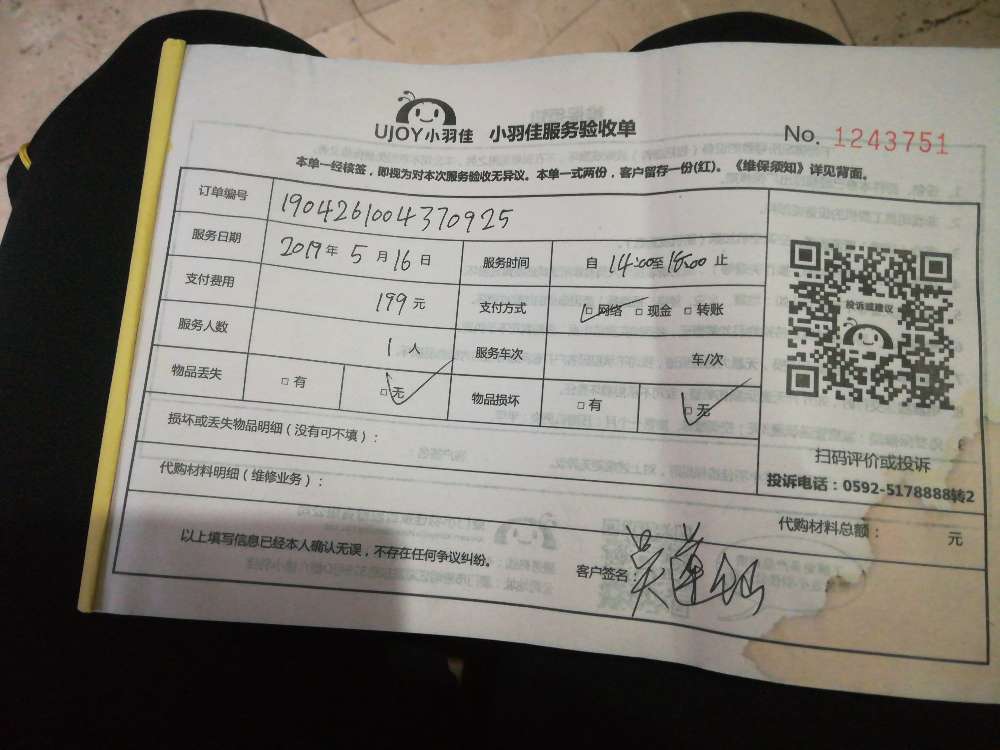 UJOY小羽佳 小羽佳服务验收单 No. 1243751
本单一经核签，即视为对本次服务验收无异议。本单一式两份，客户留存一份(红)。《维保须知》详见背面。
订单编号 1904261004370925
服务日期 2019年 5 月 16 日 服务时间 自 14:00至18:00 止
支付费用 199 元 支付方式 □网络 □现金 □转账
服务人数 1 人 服务车次 车/次
物品丢失 □有 □无 物品损坏 □有 □无
损坏或丢失物品明细（没有可不填）：
代购材料明细（维修业务）：
投诉或建议
扫码评价或投诉
投诉电话：0592-5178888转2
代购材料总额： 元
以上填写信息已经本人确认无误，不存在任何争议纠纷。 客户签名：吴莲仙